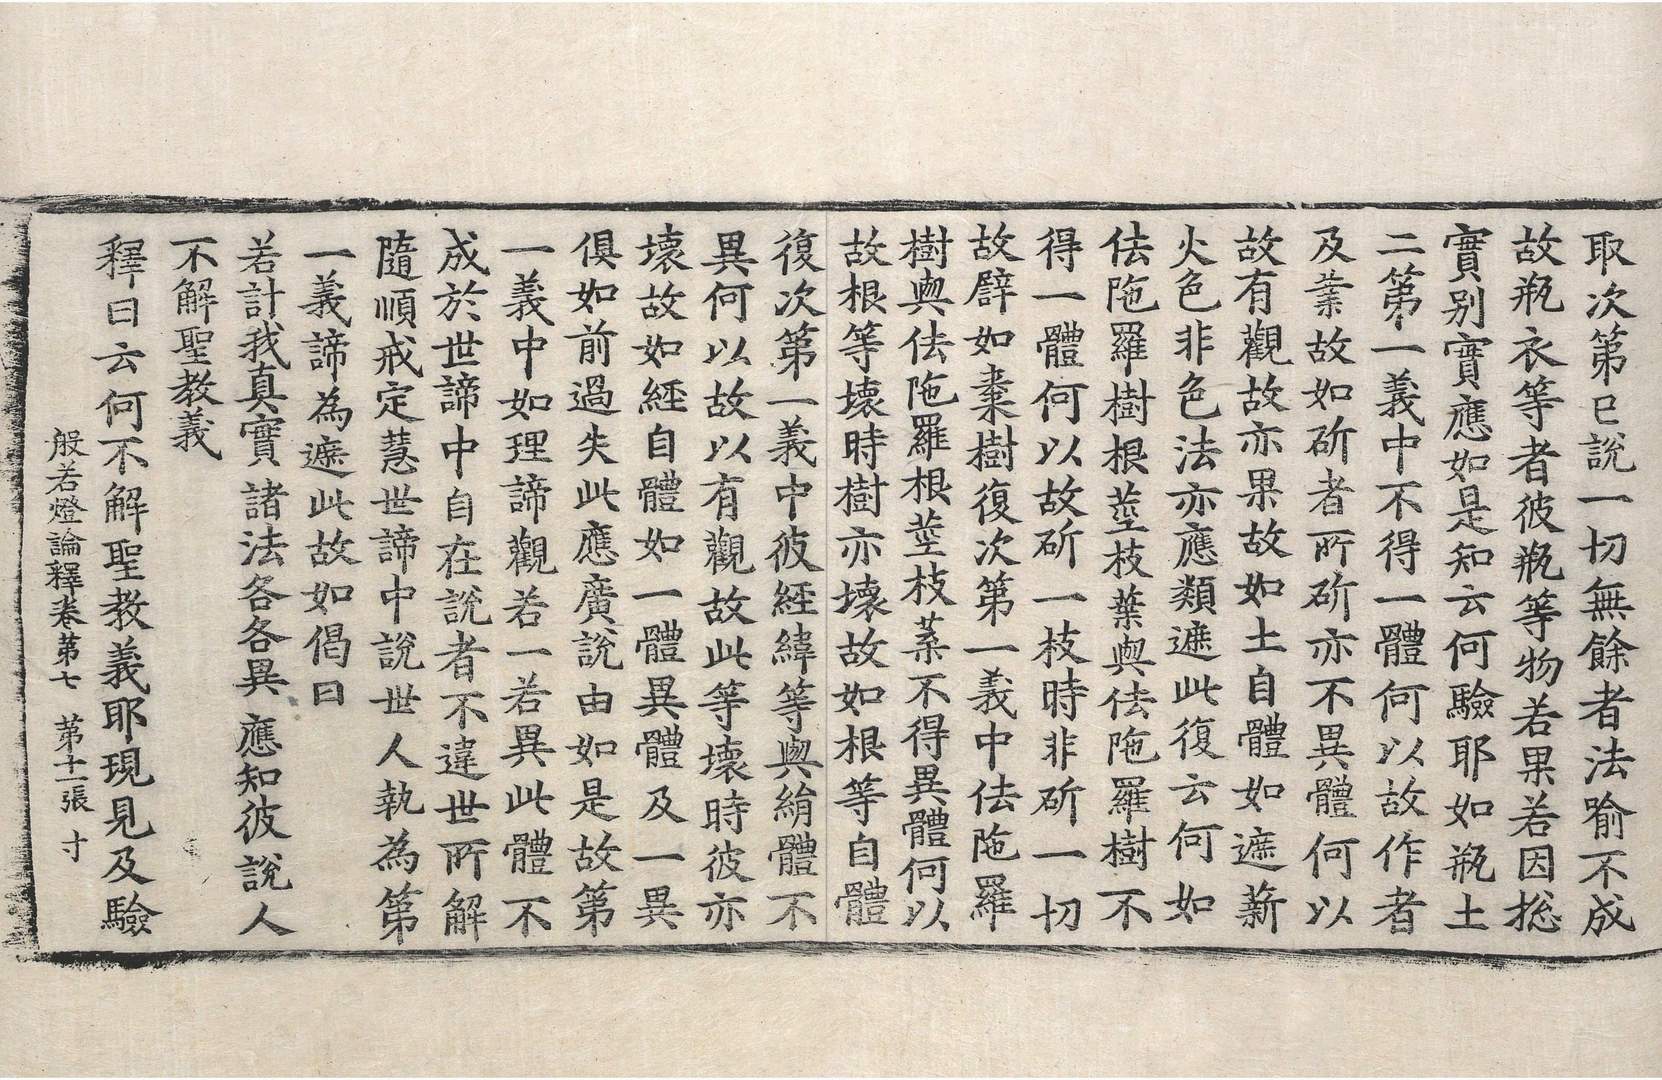 取次第已說一切無餘者法喻不成
故瓶衣等者彼瓶等物若果若因捴
實別實應如是知云何驗耶如瓶土
二第一義中不得一體何以故作者
及業故如斫者所斫亦不異體何以
故有觀故亦果故如土自體如遮薪
火色非色法亦應類遮此復云何如
佉陁羅樹根莖枝葉與佉陁羅樹不
得一體何以故斫一枝時非斫一切
故譬如棗樹復次第一義中佉陁羅
樹與佉陁羅根莖枝葉不得異體何以
故根等壞時樹亦壞故如根等自體
復次第一義中彼經緯等與絹體不
異何以故以有觀故此等壞時彼亦
壞故如經自體如一體異體及一異
俱如前過失此應廣說由如是故第
一義中如理諦觀若一若異此體不
成於世諦中自在說者不違世所解
隨順戒定慧世諦中說世人執為第
一義諦為遮此故如偈曰
若計我真實諸法各各異 應知彼說人
不解聖教義
釋曰云何不解聖教義耶現見及驗
般若燈論釋卷第七 第十一張 寸